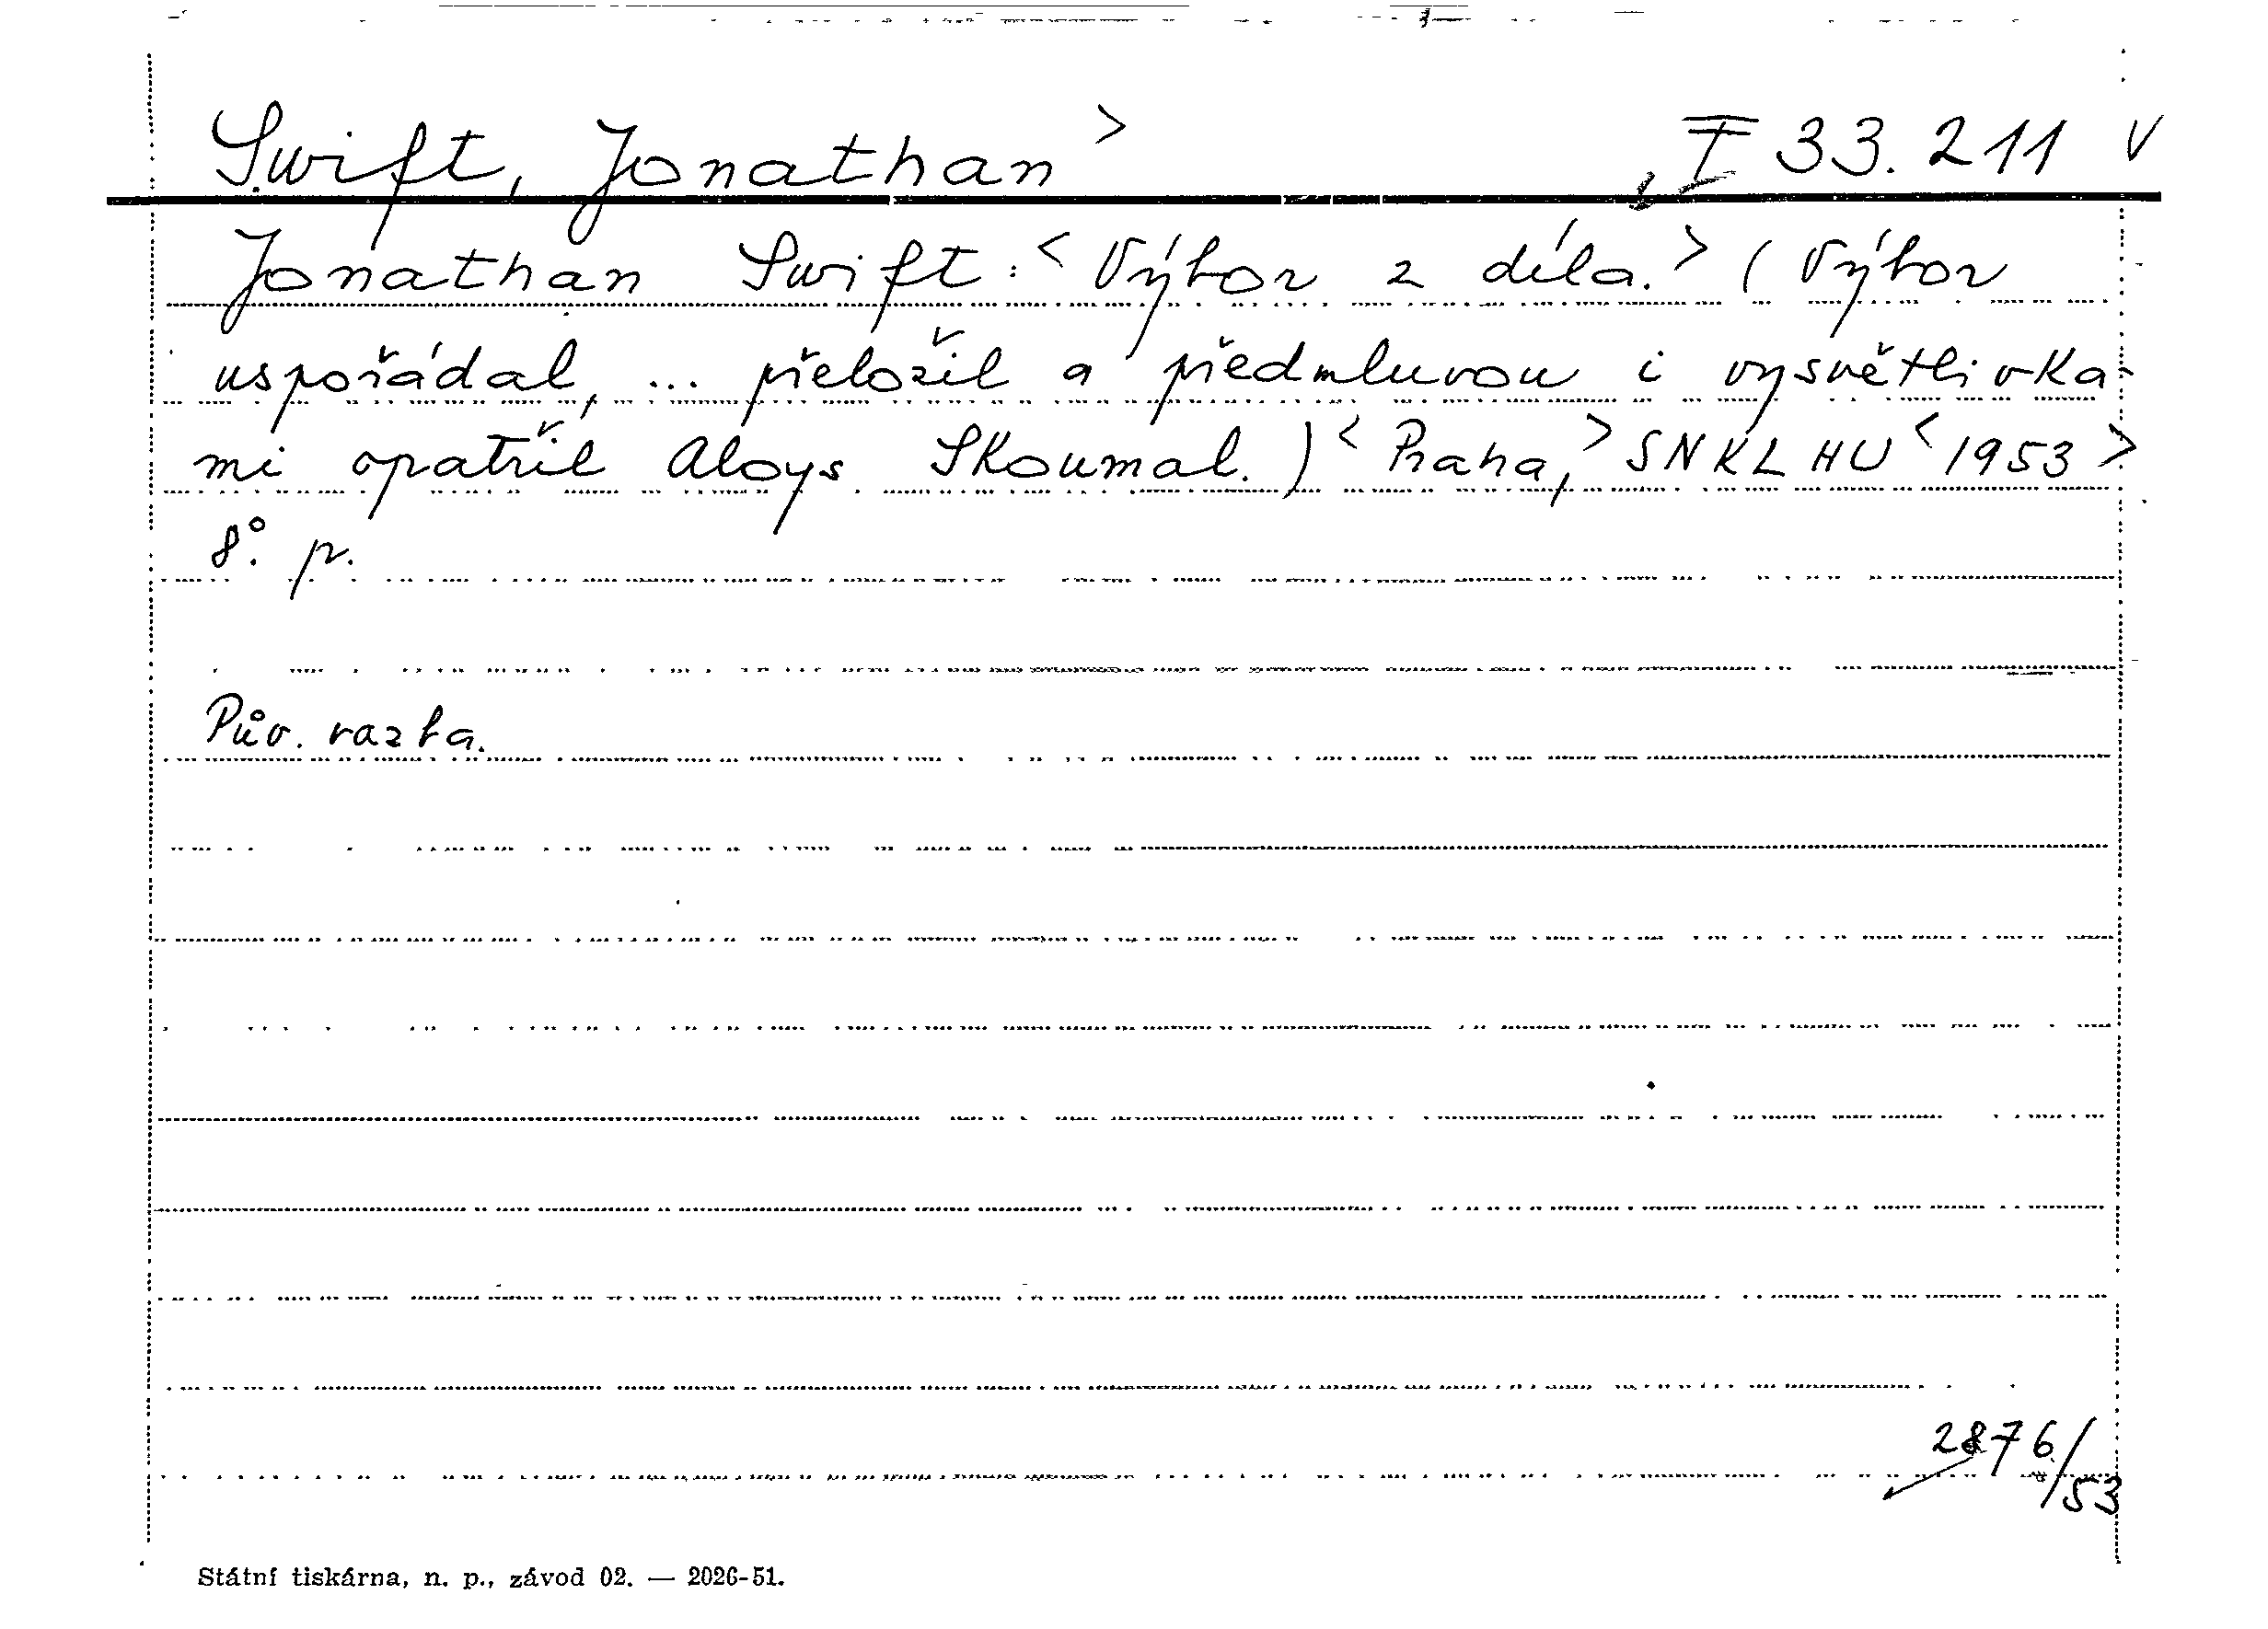 Swift, Jonathan > I 33.211 V
Jonathan Swift: < Výbor z díla. > ( Výbor
uspořádal, ... přeložil a předmluvou i vysvětlivka-
mi opatřil Aloys Skoumal. ) < Praha, > SNKLHU < 1953 >
8°. p.
Pův. vazba.
2876/53
Státní tiskárna, n. p., závod 02. — 2026-51.